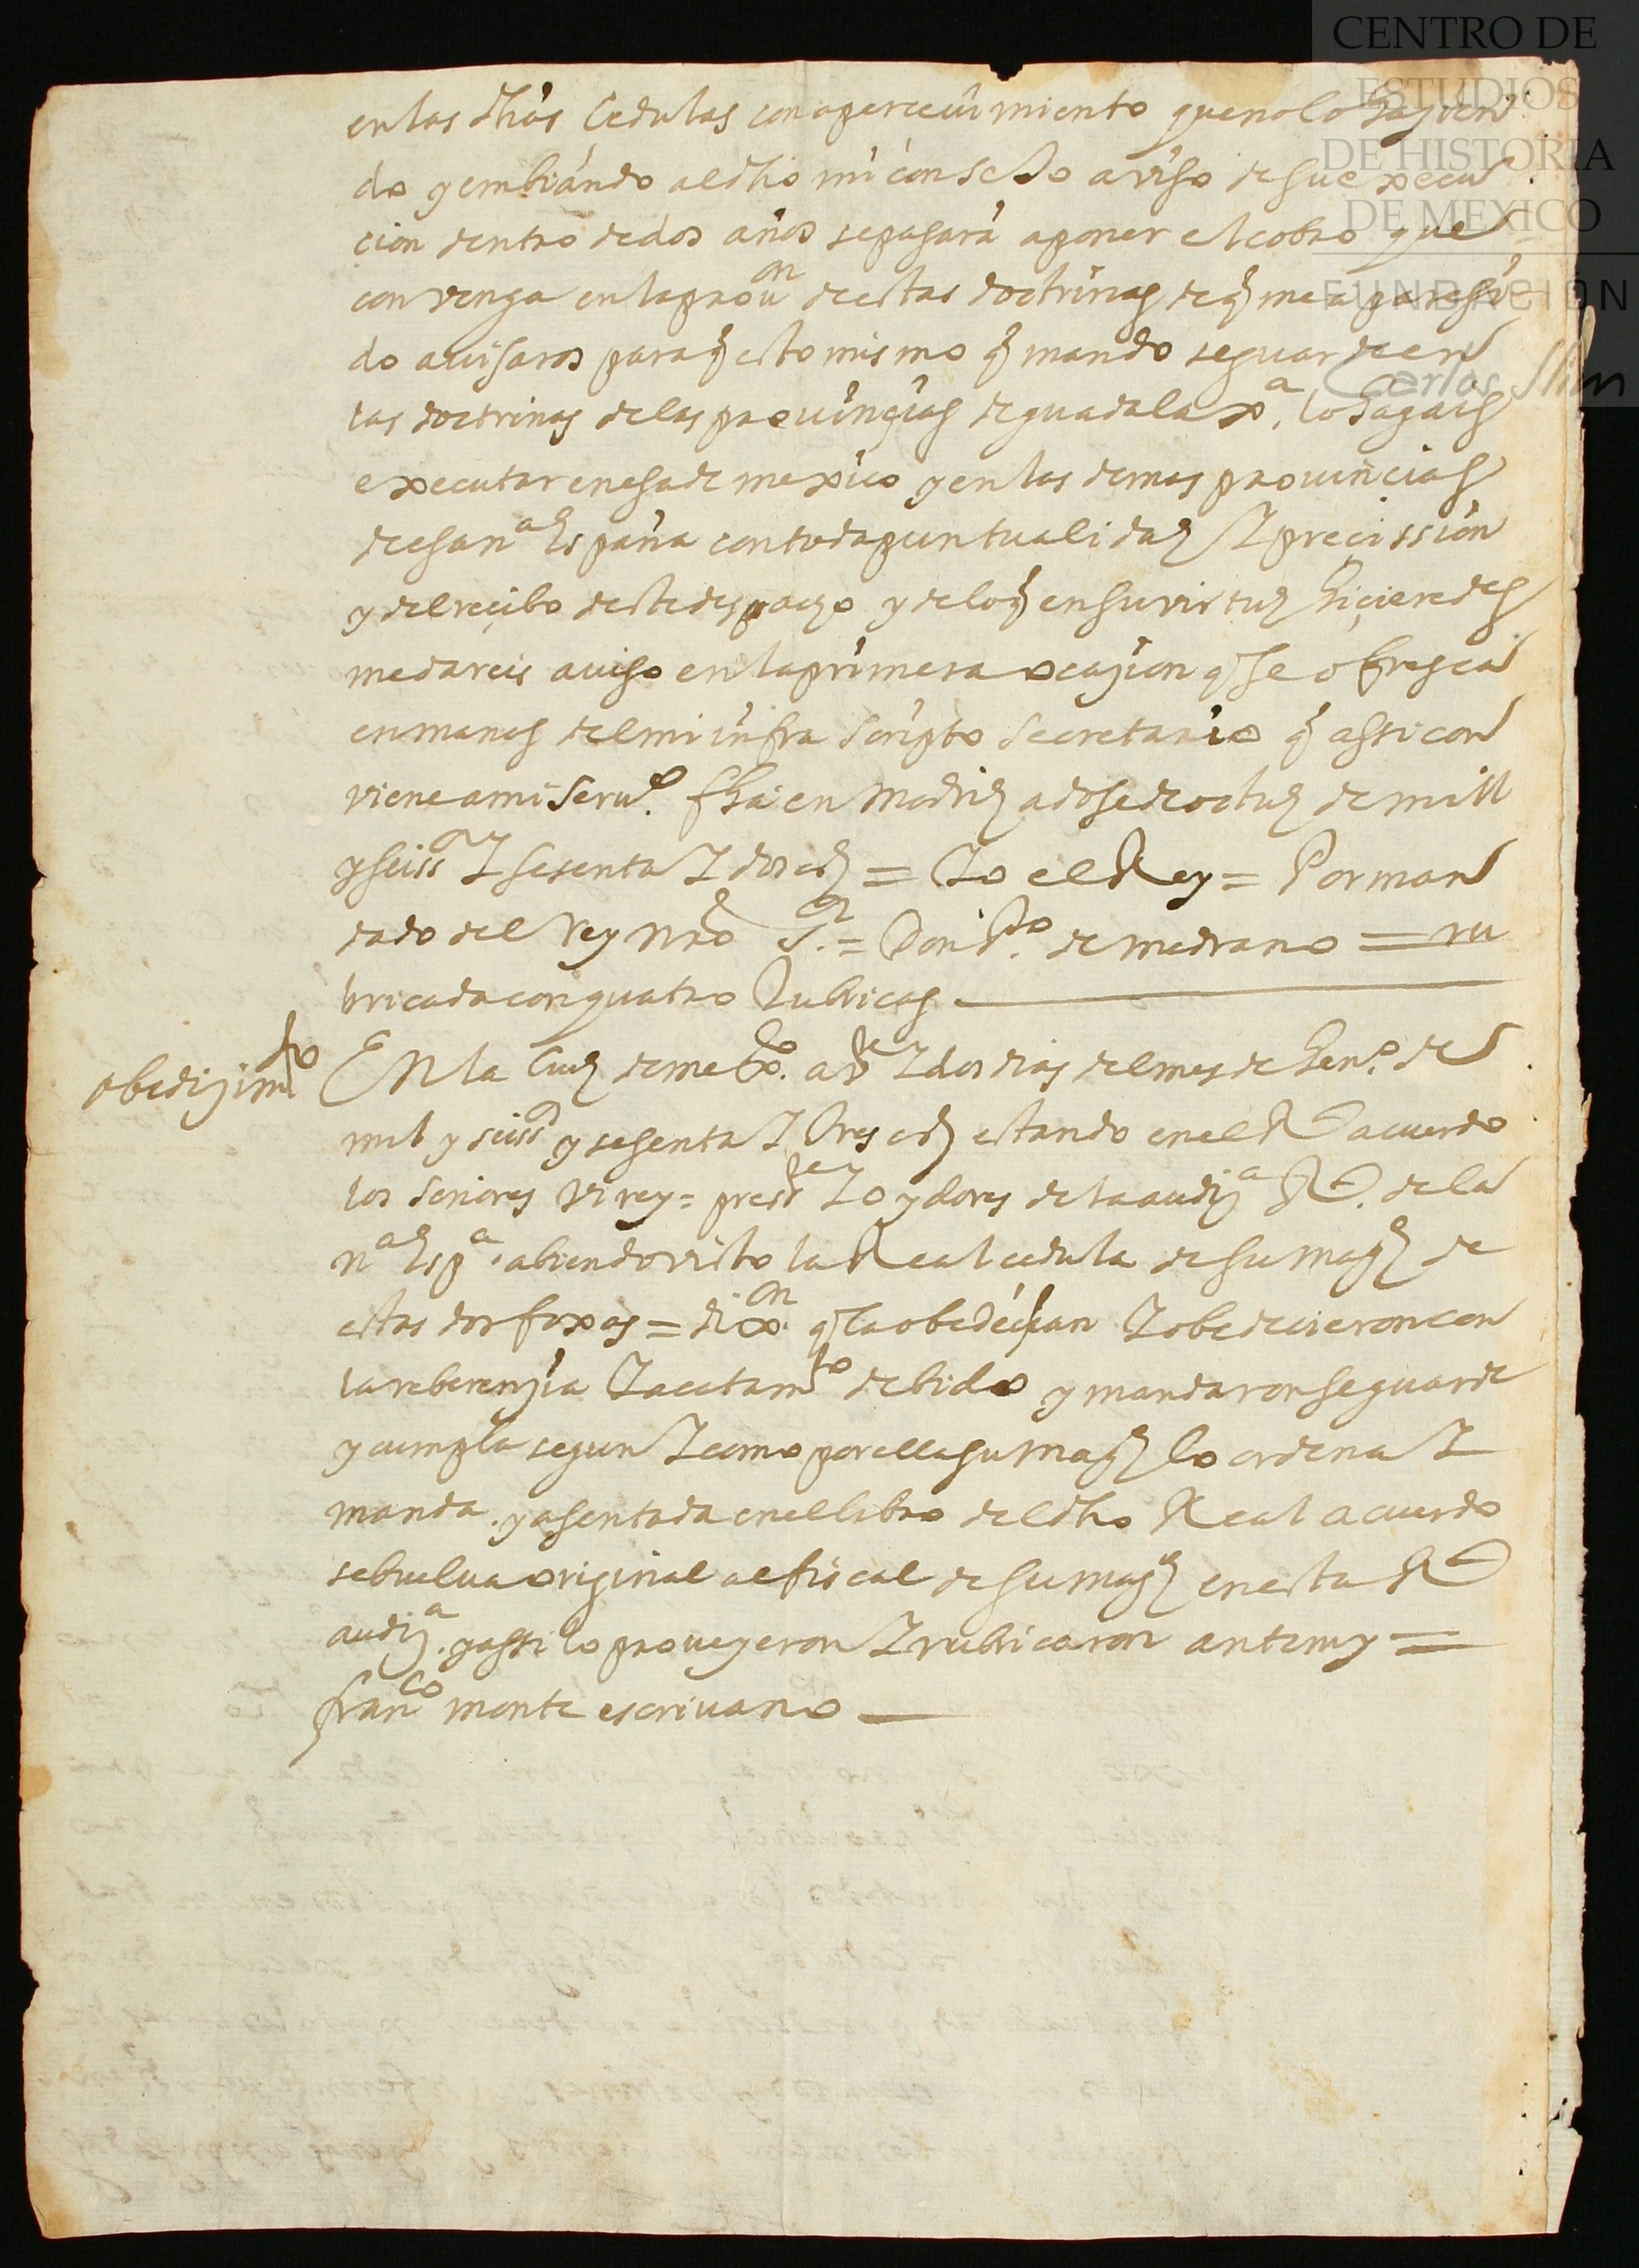 CENTRO DE
ESTUDIOS
DE HISTORIA
DE MEXICO
FUNDACIÓN
Carlos Slim
en las dhas Cedulas con aperceuimiento que no lo hazien
do y embiando al dho mi consejo aviso de su execu
cion dentro de dos años se pasará a poner el cobro que
convenga en la prouon de estas doctrinas de q̃ me a pareçi
do auisaros para q̃ esto mismo q̃ mando se guarde en
las doctrinas de las prouinçias de guadalaxa, lo hagais
executar en esa de mexico y en las demas prouincias
de esa na España con toda puntualidad I preçission
y del reçibo deste despacho y de lo q̃ en su virtud hiçieredes
me dareis auiso en la primera ocazion q̃ se ofresca
en manos del mi infra scripto secretario q̃ assi con
viene a mi seruo. fha en Madrid a dose de octue de mill
y seiss I sesenta I dos as = Io el Rey = Por man
dado del Rey nro Sr. = Don Po. de medrano = ru
bricada con quatro Rubricas
obedizimto
En la Ciud de mexco. a Ve I dos dias del mes de hen.o de
mil y seiss y sesenta I tres as estando en el Rl acuerdo
los señores Virey = presste I oydores de la audia Rl. de la
na Espa. abiendo visto la Real cedula de su magd de
estas dos foxas = dixon. q̃ la obedeçian I obedecieron con
la reberenzia I acatamto debido y mandaron se guarde
y cumpla segun I como por ella su magd lo ordena I
manda. y asentada en el libro del dho Real acuerdo
se buelua original al fiscal de su magd en esta Rl
audia. y assi lo proueyeron I rubricaron ante my =
franco monte escriuano